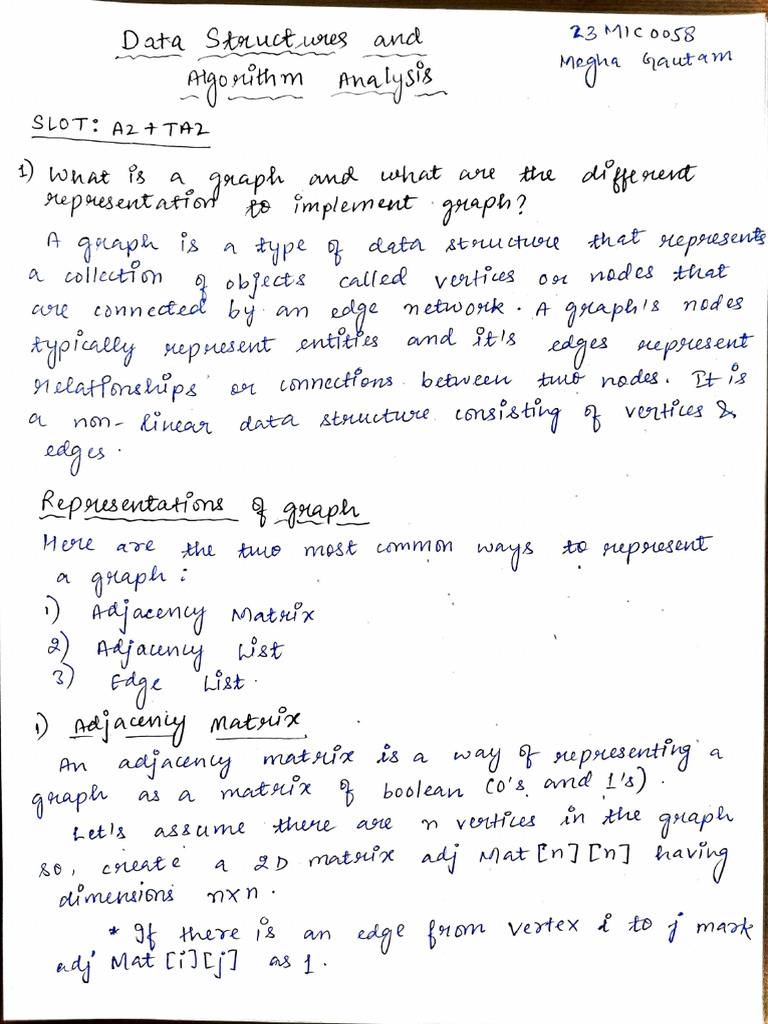 Data Structures and
Algorithm Analysis
23MIC0058
Megha Gautam
SLOT: A2+TA2
1) What is a graph and what are the different
representation to implement graph?
A graph is a type of data structure that represents
a collection of objects called vertices or nodes that
are connected by an edge network. A graph's nodes
typically represent entities and it's edges represent
relationships or connections between two nodes. It is
a non-linear data structure consisting of vertices &
edges.
Representations of graph
Here are the two most common ways to represent
a graph:
1) Adjacency Matrix
2) Adjacency List
3) Edge List.
1) Adjaceniy Matrix
An adjacency matrix is a way of representing a
graph as a matrix of boolean (0's and 1's).
Let's assume there are n vertices in the graph
so, create a 2D matrix adj Mat[n][n] having
dimensions nxn.
* If there is an edge from vertex i to j mark
adj Mat[i][j] as 1.